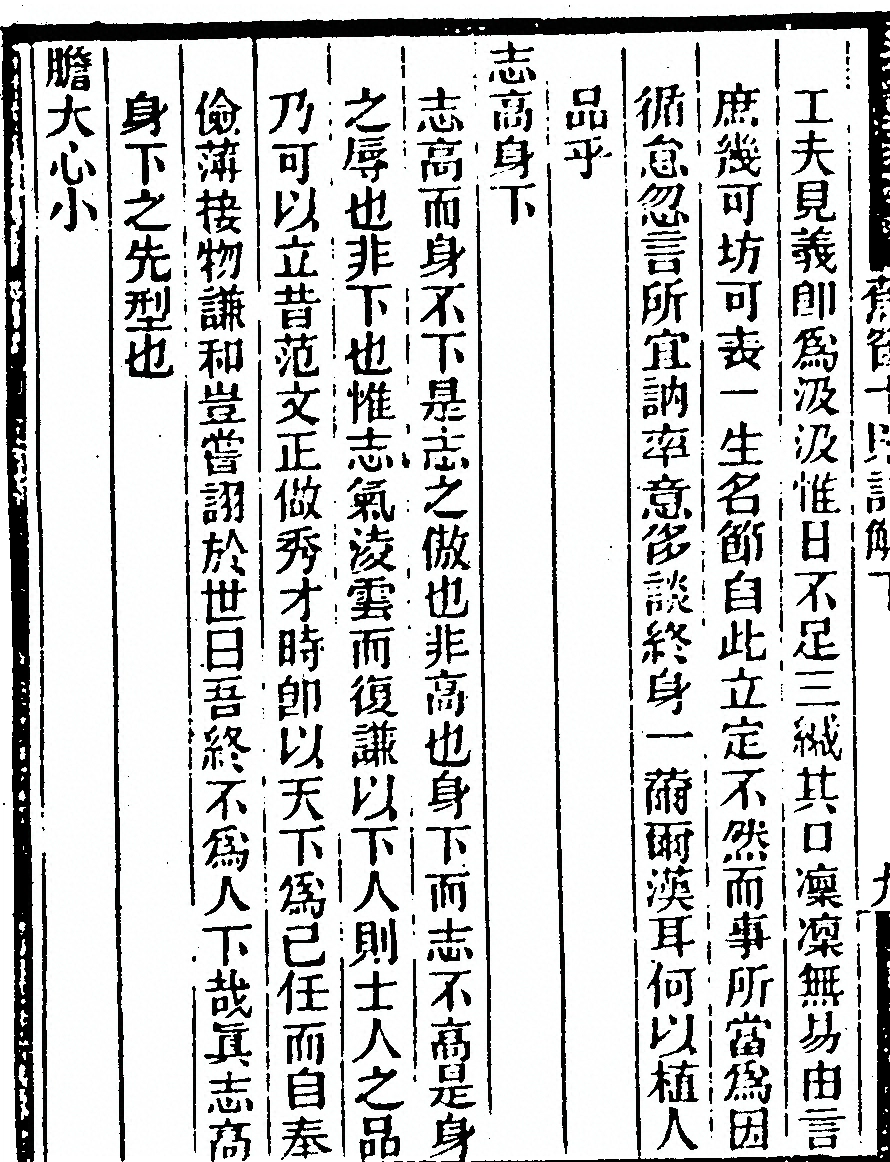 工夫見義卽爲汲汲惟日不足三緘其口凜凜無易由言
庶幾可坊可表一生名節自此立定不然而事所當爲因
循怠忽言所宜訥率意多談終身一薾爾漢耳何以植人
品乎
志高身下
志高而身不下是志之傲也非高也身下而志不高是身
之辱也非下也惟志氣淩雲而復謙以下人則士人之品
乃可以立昔范文正做秀才時卽以天下爲己任而自奉
儉薄接物謙和豈嘗詡於世曰吾終不爲人下哉眞志高
身下之先型也
膽大心小